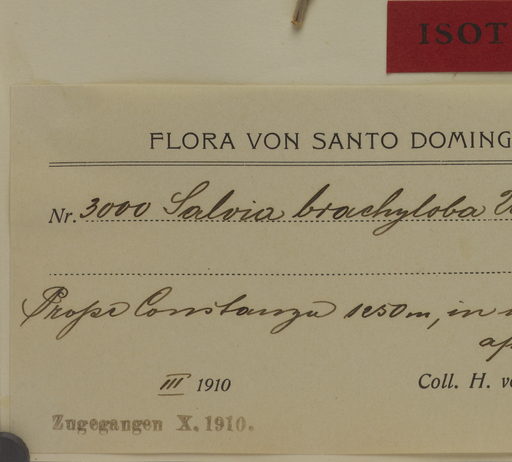 ISOT
FLORA VON SANTO DOMING
Nr. 3000 Salvia brachyloba
Prope Constanza 1250 m, in
III 1910
Coll. H. v
Zugegangen X. 1910.